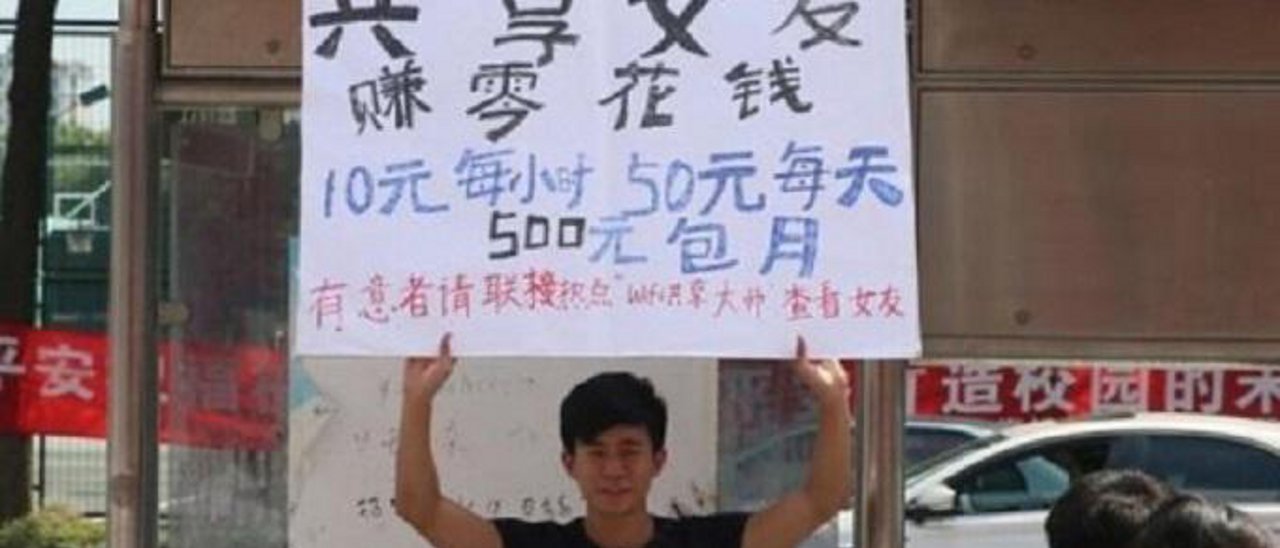 共享女友
赚零花钱
10元每小时 50元每天
500元包月
有意者请联接热点"WiFi共享大师"查看女友
平安
造校园的